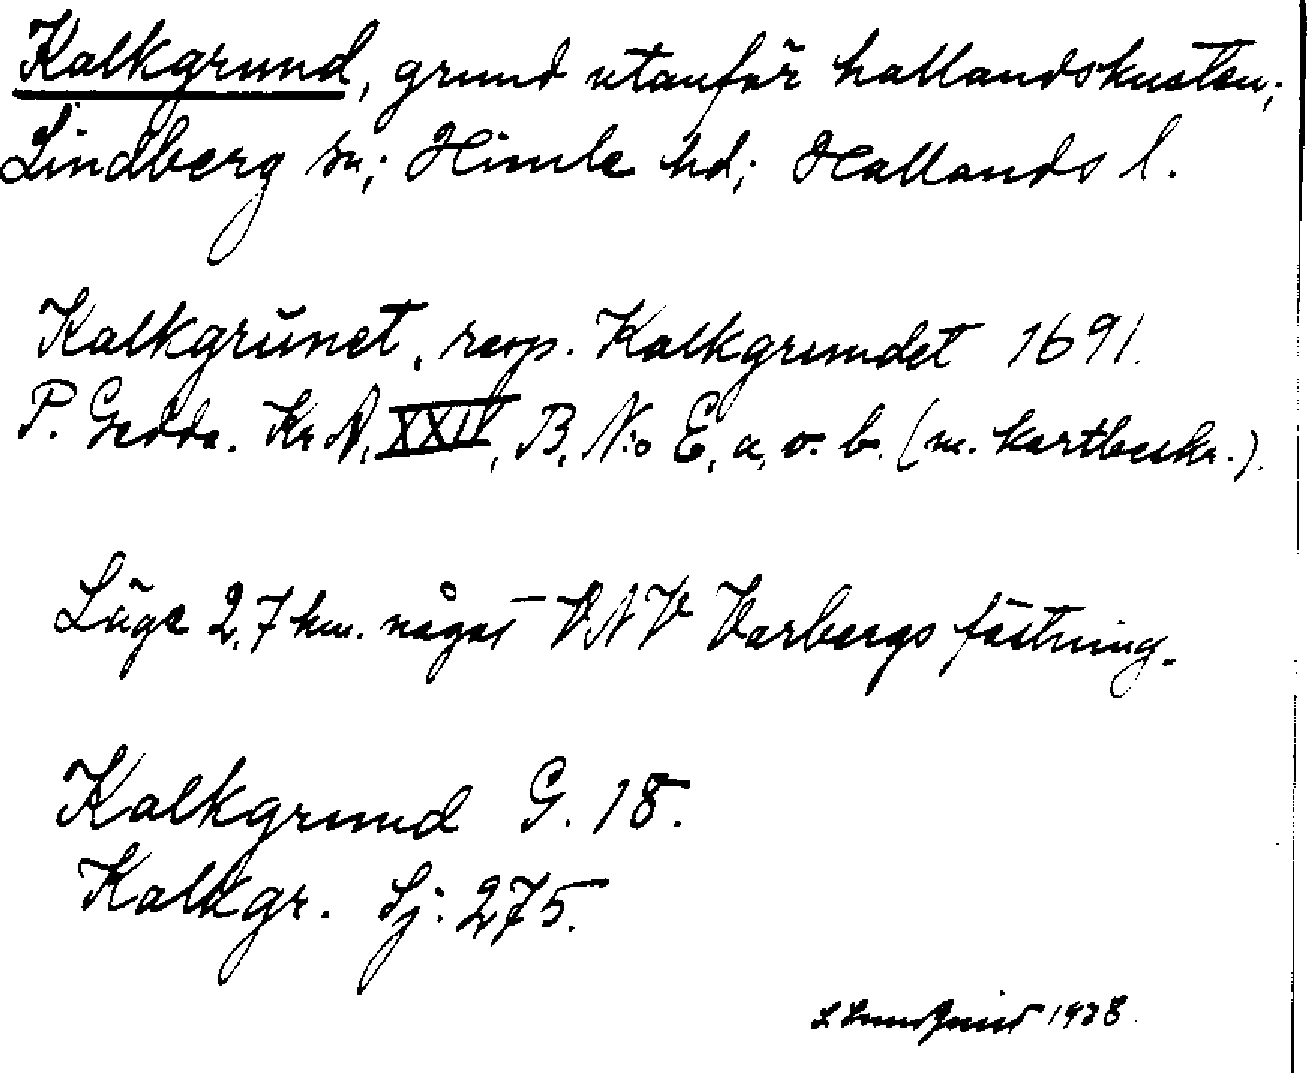 Kalkgrund, grund utanför hallandskusten;
Lindberg sn; Himle hd; Hallands l.
Kalkgrŭnet, resp. Kalkgrundet 1691.
P. Gedda. Kr A, XXIV, B, N:o E, a, o. b. (m. kartbeskr.).
Läge 2,7 km. något VNV Varbergs fästning.
Kalkgrund G. 18.
Kalkgr. Sj: 275.
1938.